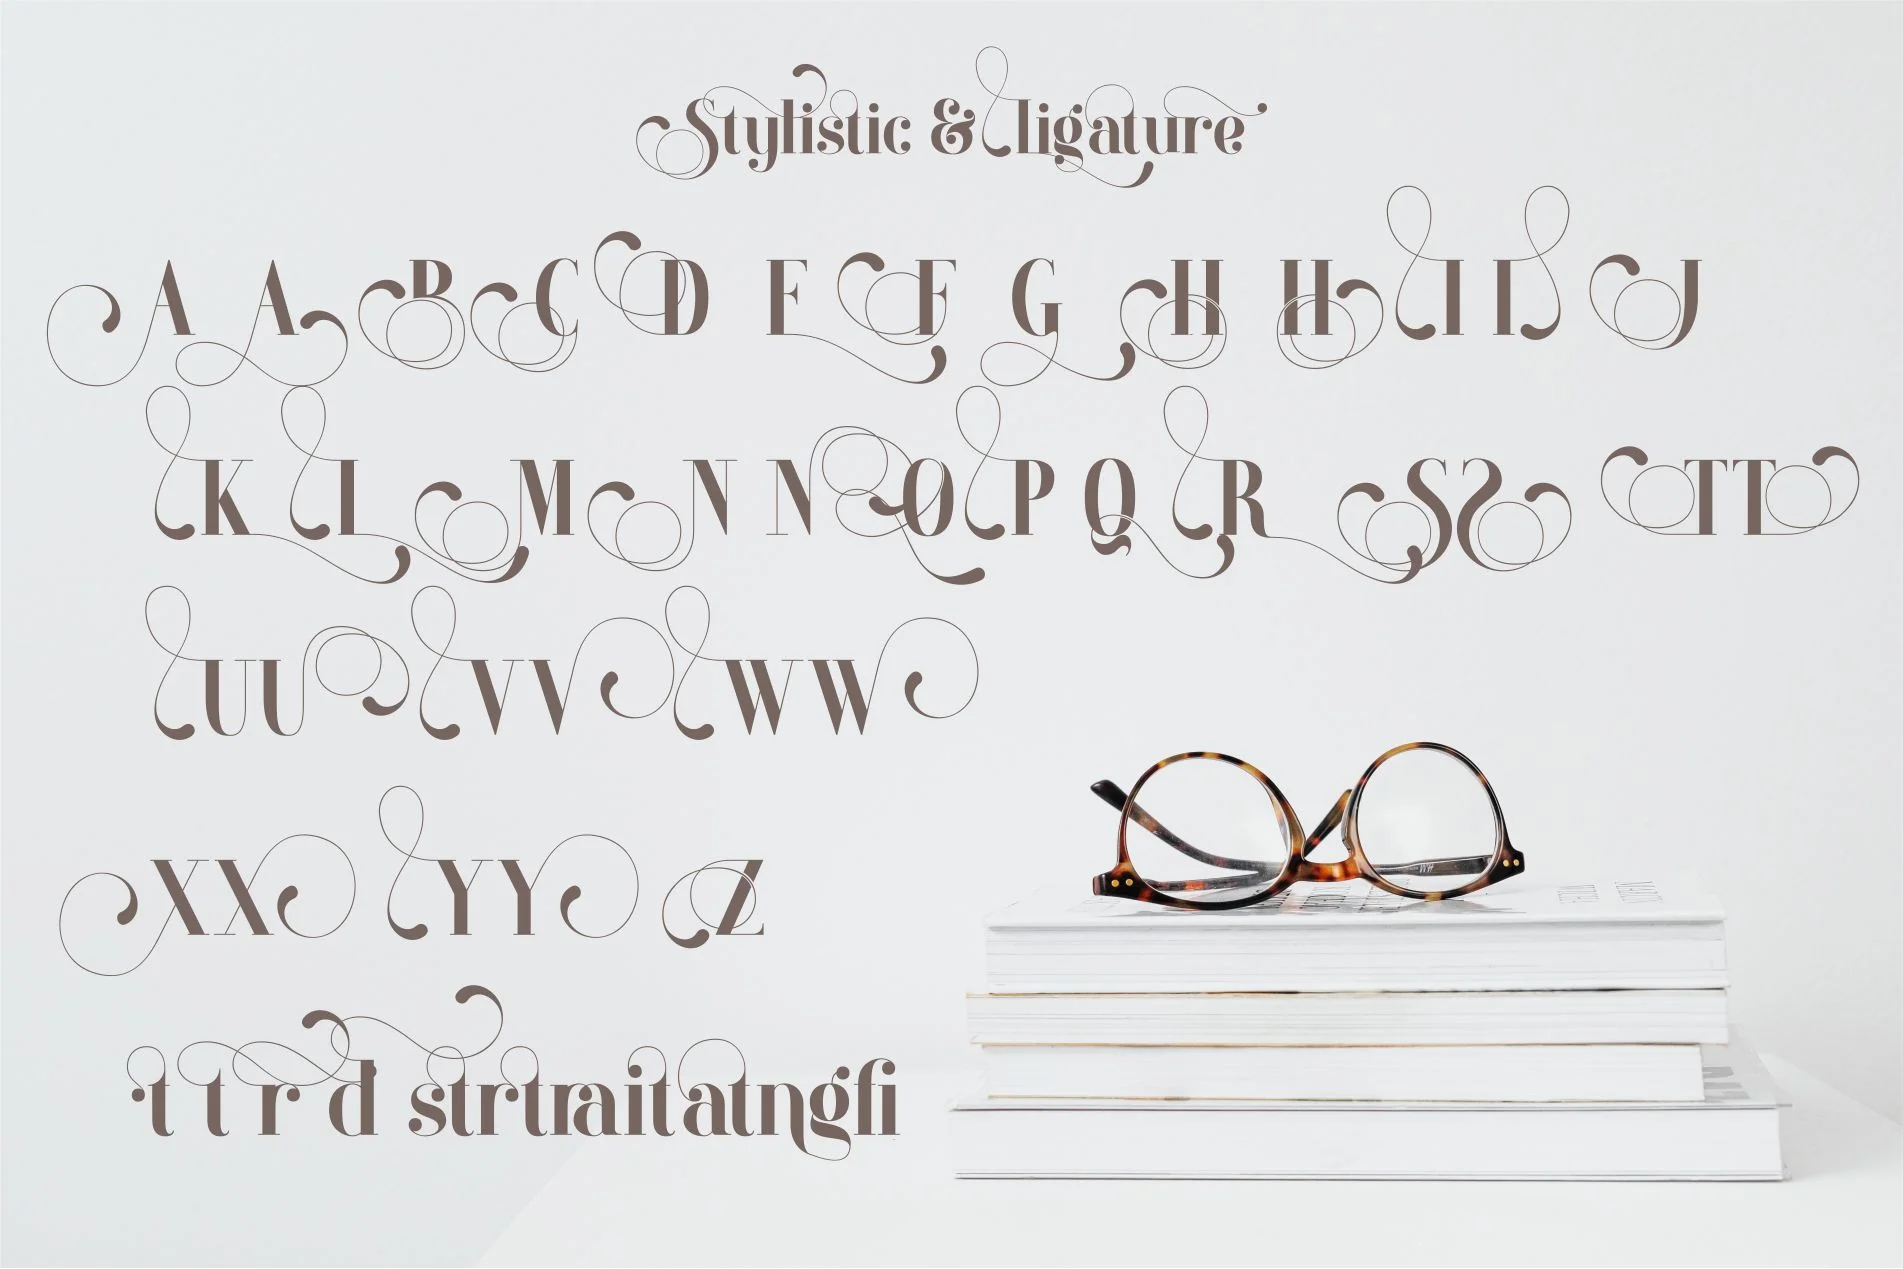 Stylistic & ligature
A A B C D E F G H H I I J
K L M N N O P Q R S S T T
U U V V W W
X X Y Y Z
t t r d st rt ra it at ng fi